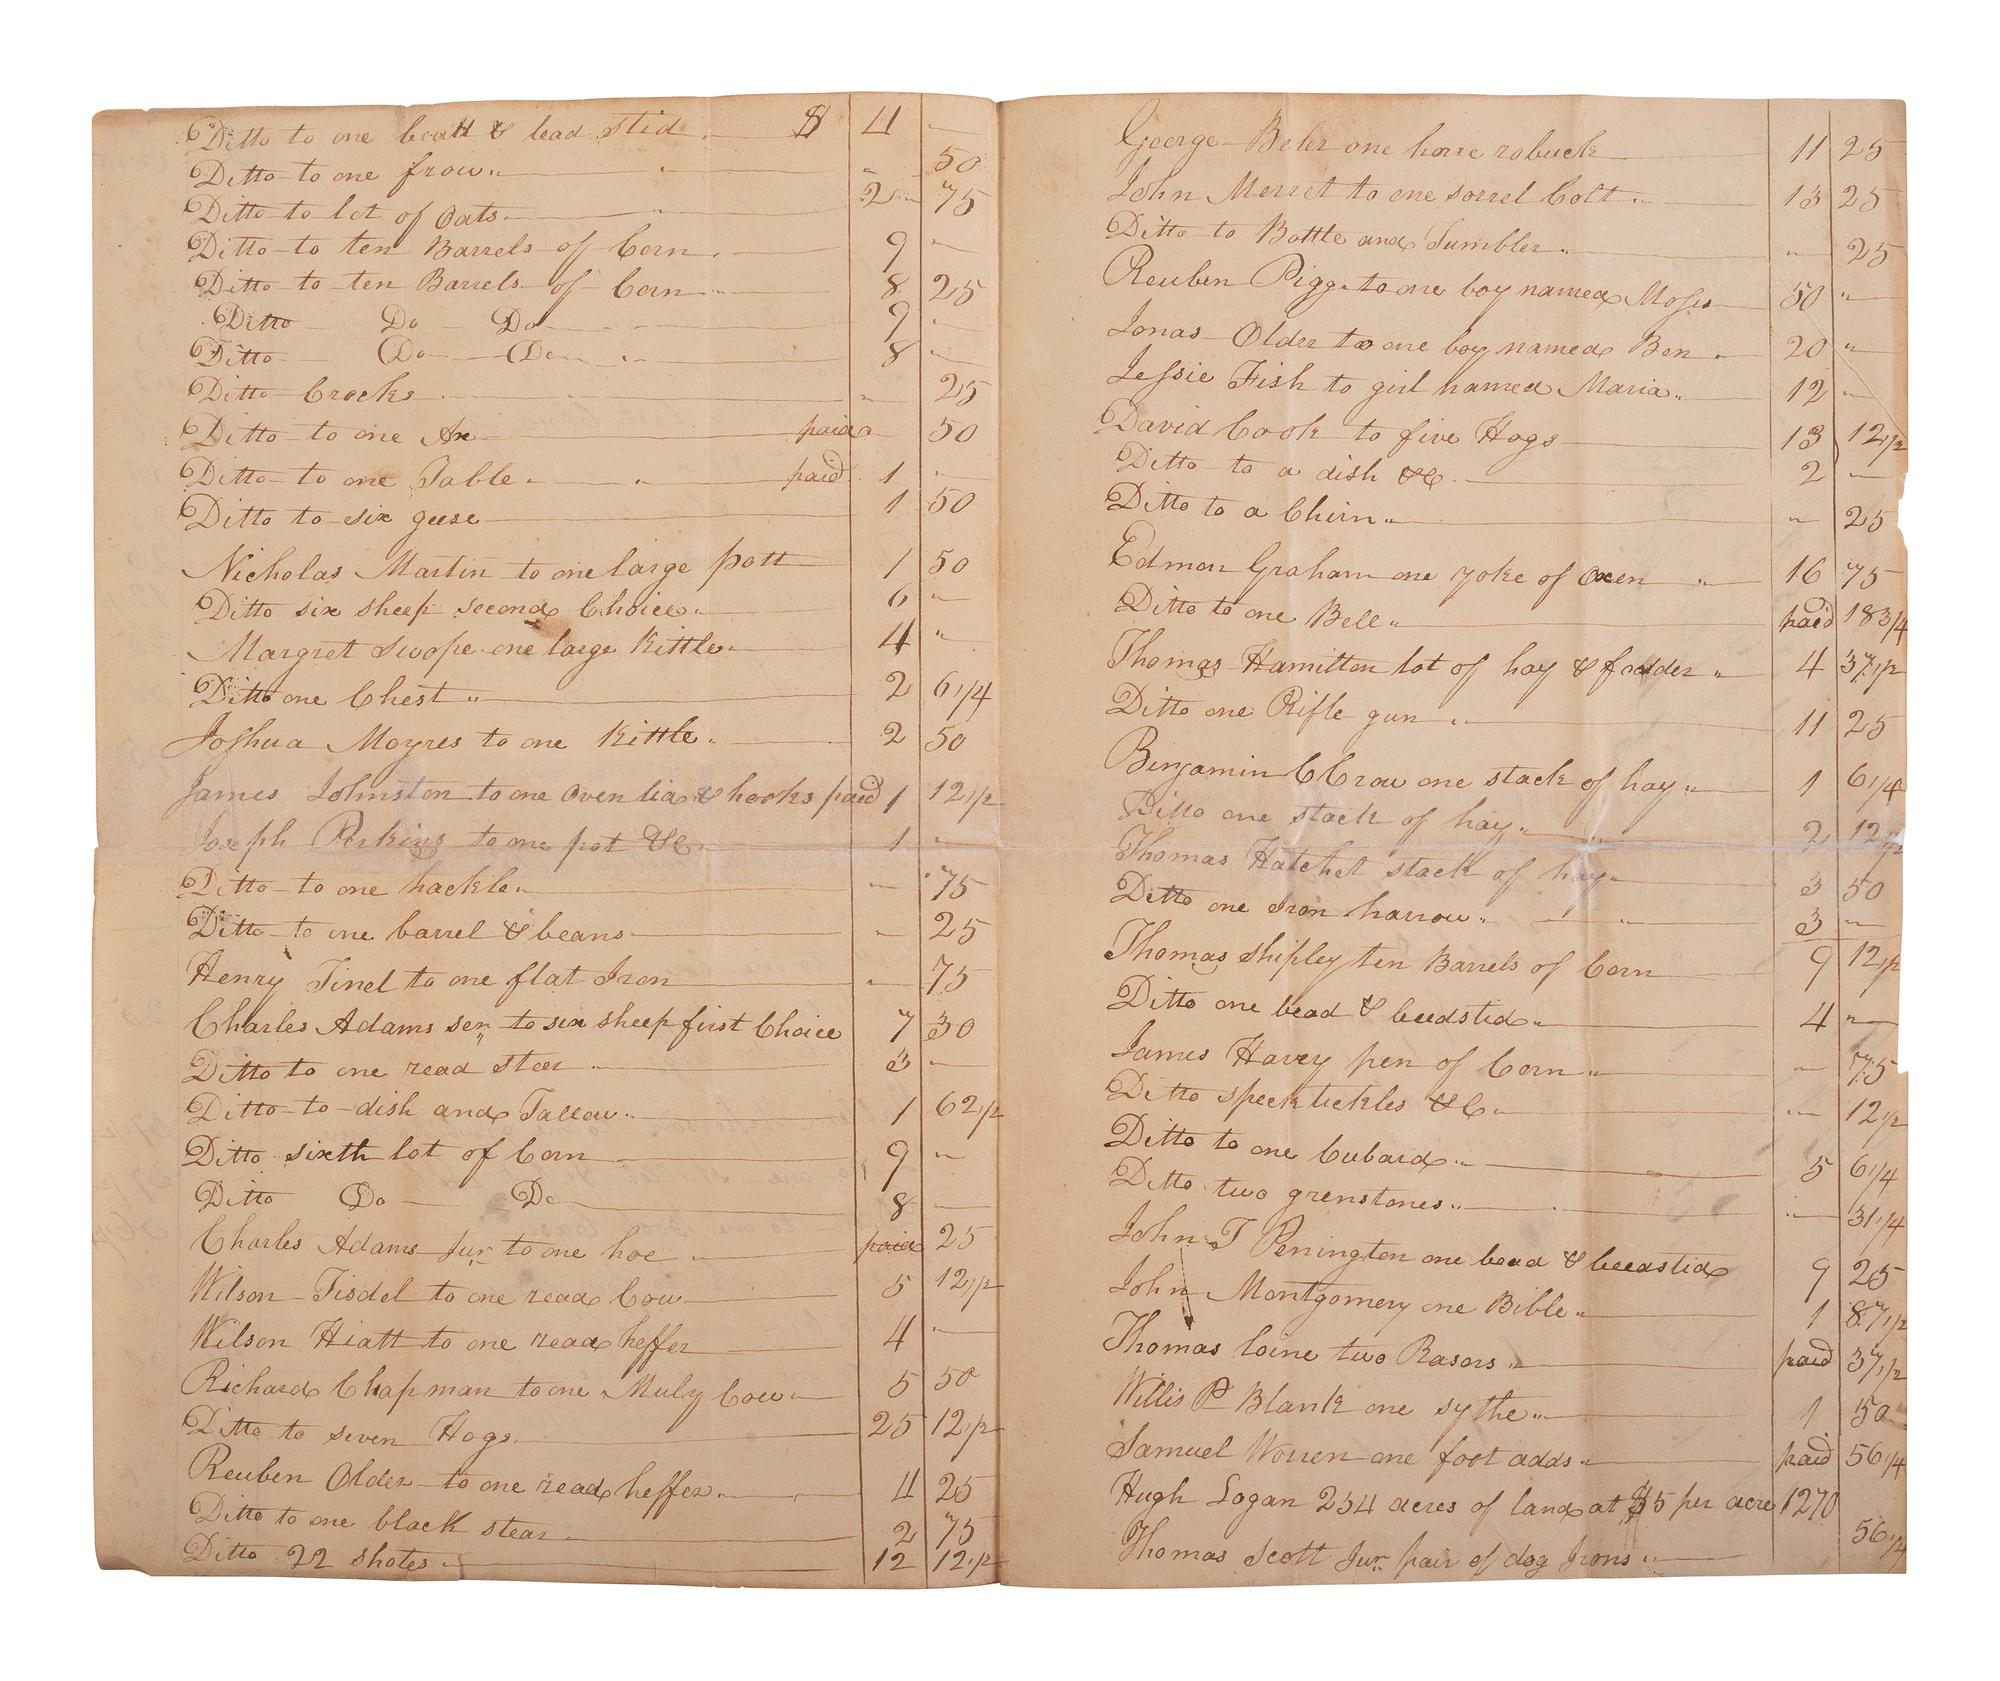 Ditto to one beatt & bead stid $ 4 "
Ditto to one frow " " 50
Ditto to lot of oats 2 75
Ditto to ten Barrels of Corn 9 "
Ditto to ten Barrels of Corn 8 25
Ditto Do Do 9 "
Ditto Do Do 8 "
Ditto Crocks " 25
Ditto to one Ax paid 50
Ditto to one Table paid 1 "
Ditto to six geese 1 50
Nicholas Martin to one large pott 1 50
Ditto six sheep second Choice 6 "
Margret Swope one large Kittle 4 "
Ditto one Chest " 2 6 1/4
Joshua Moyres to one Kittle 2 50
James Johnston to one oven lid & hooks paid 1 12 1/2
Joseph Perkins to one pot &C 1 "
Ditto to one hackle " " 75
Ditto to one barrel & beans " 25
Henry Tinel to one flat Iron " 75
Charles Adams sen to six sheep first Choice 7 30
Ditto to one read steer 3 "
Ditto to dish and Tallow 1 62 1/2
Ditto sixth lot of Corn 9 "
Ditto Do Do 8 "
Charles Adams Jur to one hoe paid 25
Wilson Tisdel to one read Cow 5 12 1/2
Wilson Hiatt to one read heffer 4 "
Richard Chapman to one Muly Cow 5 50
Ditto to seven Hogs 25 12 1/2
Reuben Older to one read heffer 4 25
Ditto to one black stear 2 75
Ditto 22 shotes 12 12 1/2
George Beler one horse robuck 11 25
John Merret to one sorrel Colt 13 25
Ditto to Bottle and Tumbler " 25
Reuben Pigg to one boy named Moses 50 "
Jonas Older to one boy named Ben 20 "
Jessie Fish to girl named Maria 12 "
David Cook to five Hogs 13 12 1/2
Ditto to a dish &C 2 "
Ditto to a Churn " " 25
Edmon Graham one yoke of oxen " 16 75
Ditto to one Bell " paid 18 3/4
Thomas Hamilton lot of hay & fodder " 4 37 1/2
Ditto one Rifle gun 11 25
Benjamin C Crow one stack of hay " 1 6 1/4
Ditto one stack of hay " 2 12 1/2
Thomas Hatchet stack of hay " 3 50
Ditto one Iron harrow " 3 "
Thomas Shipley ten Barrels of Corn 9 12 1/2
Ditto one bead & beedstid " 4 "
James Havey pen of Corn " " 75
Ditto specktickles &C " " 12 1/2
Ditto to one Cubard " 5 6 1/4
Ditto two grenstones " " 31 1/4
John T Penington one bead & beedstid 9 25
John Montgomery one Bible " 1 87 1/2
Thomas Coine two Rasors " paid 37 1/2
Willis P Blank one sythe " 1 50
Samuel Worren one foot adds " paid 56 1/4
Hugh Logan 254 acres of land at $5 per acre 1270
Thomas Scott Jur pair of dog Irons " 56 1/4